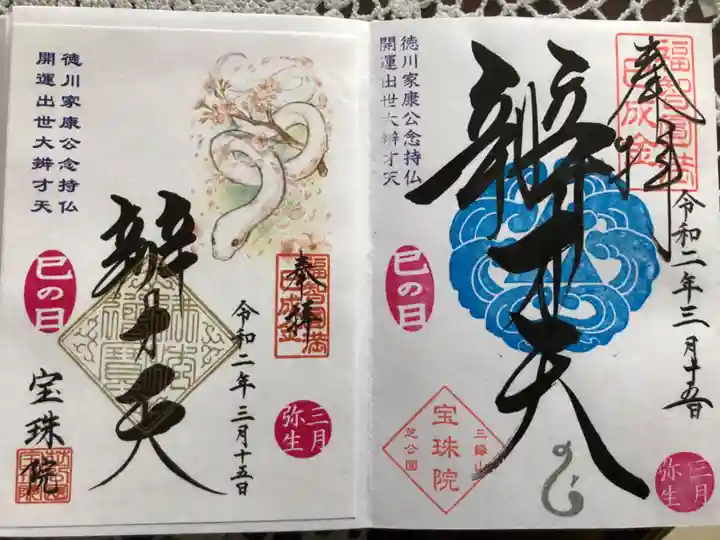 徳川家康公念持仏
開運出世大辨才天
奉拝
辨才天
巳の日
令和二年三月十五日
三月
弥生
宝珠院
福智円満
巳成金
奉拝
徳川家康公念持仏
開運出世大辨才天
辨才天
巳の日
令和二年三月十五日
三縁山
宝珠院
芝公園
三月
弥生